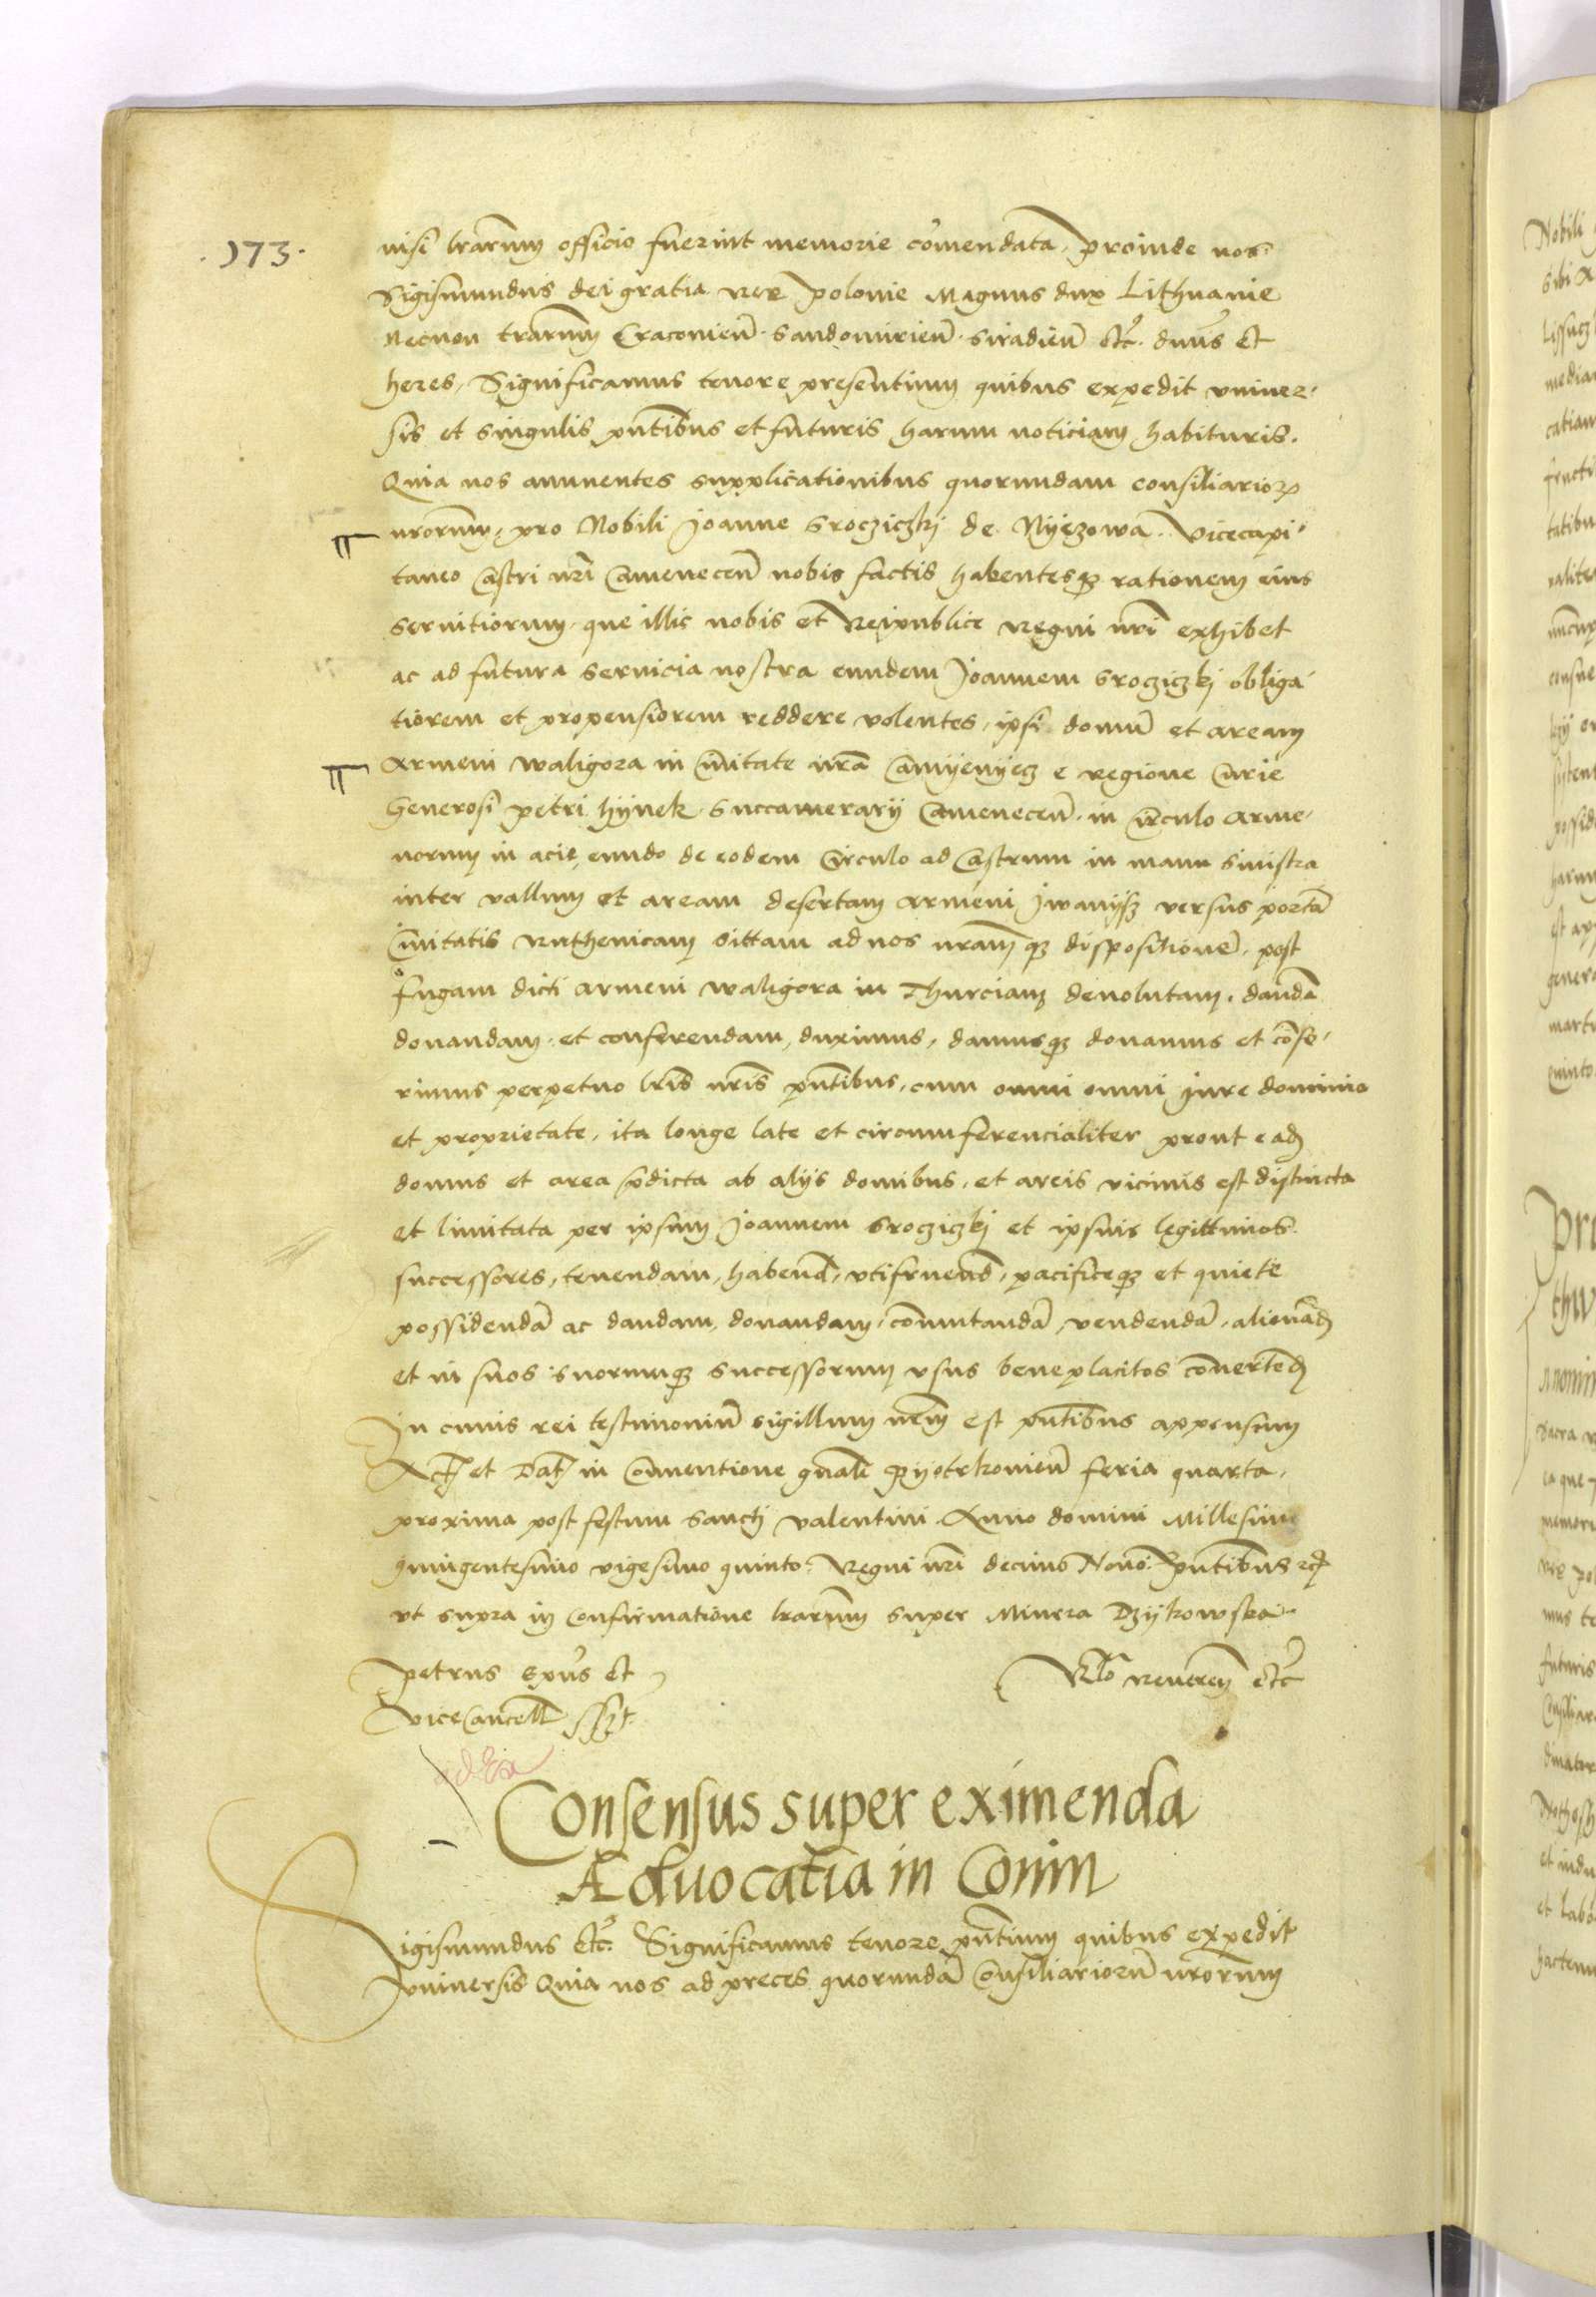 .173.
nisi lrarum officio fuerint memorie comendata, proinde nos
Sigismundus dei gratia rex polonie Magnus dux Lithuanie
Necnon trarum Cracovien. Sandomirien. Siradien etc. dnus et
heres, Significamus tenore presentium quibus expedit univer-
sis et singulis pntibus et futuris harum noticiam habituris.
Quia nos annuentes supplicationibus quorundam consiliarior
nrorum, pro Nobili Joanne Srocziczkj de Nyezowa. Vicecapi-
taneo Castri nri Camenecen nobis factis habentesq rationem eius
servitiorum que illic nobis et Reipublice Regni nri exhibet
ac ad futura servicia nostra eundem Joannem Srocziczkj obliga-
tiorem et propensiorem reddere volentes, ipsi domu et aream
Armeni waligora in Civitate nra Camyenyecz e regione Curie
Generosi petri hynek Succamerarij Camenecen. in Circulo Arme-
norum in acie eundo de eodem Circulo ad Castrum in manu sinistra
inter vallum et aream desertam Armeni Jwanijss versus porta
Civitatis Ruthenicam sittam ad nos nramq dispositione. post
fugam dicti Armeni waligora in Thurciam devolutam, danda
donandam et conferendam, duximus, damusq donamus et confe-
rimus perpetuo lris nris pntibus, cum omni omni jure dominio
et proprietate, ita longe late et circumferencialiter prout ead
domus et area pdicta ab alijs domibus, et areis vicinis est distincta
et limitata per ipsum Joannem Srocziczkj et ipsius legittimos
successores, tenendam, habend, utifruend, pacificeq et quiete
possidenda ac dandam, donandam, commutanda, vendenda, alienand
et in suos suorumq successorum usus beneplacitos convertend
In cuius rei testimoniu sigillum nrm est pntibus appensum
Act et Dat in Conventione gnali Pyotrkovien feria quarta,
proxima post festum Sancti valentini Anno domini Millesimo
quingentesimo vigesimo quinto. Regni nri decimo Nono. pntibus
ut supra in Confirmatione lrarum super Minera Dzykowska.
petrus Epus et
Vice Cancell sst
Rlo Reverem etc
Consensus super eximenda
Advocatia in Conin
Sigismundus etc. Significamus tenore pntium quibus expedit
universis Quia nos ad preces quorunda Consiliarioru nrorum